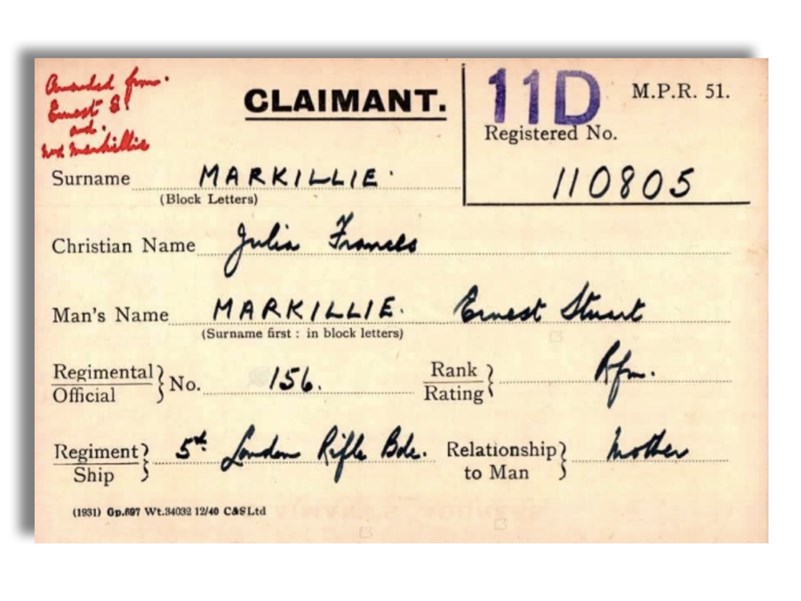 Amended from.
Ernest S.
and.
Markillie
CLAIMANT.
11D
M.P.R. 51.
Registered No.
110805
Surname MARKILLIE.
(Block Letters)
Christian Name Julia Frances
Man's Name MARKILLIE. Ernest Stuart
(Surname first : in block letters)
Regimental
Official } No. 156.
Rank
Rating } Rfm.
Regiment
Ship } 5th London Rifle Bde.
Relationship
to Man } Mother
(1931) Gp.697 Wt.34032 12/40 C&S Ltd